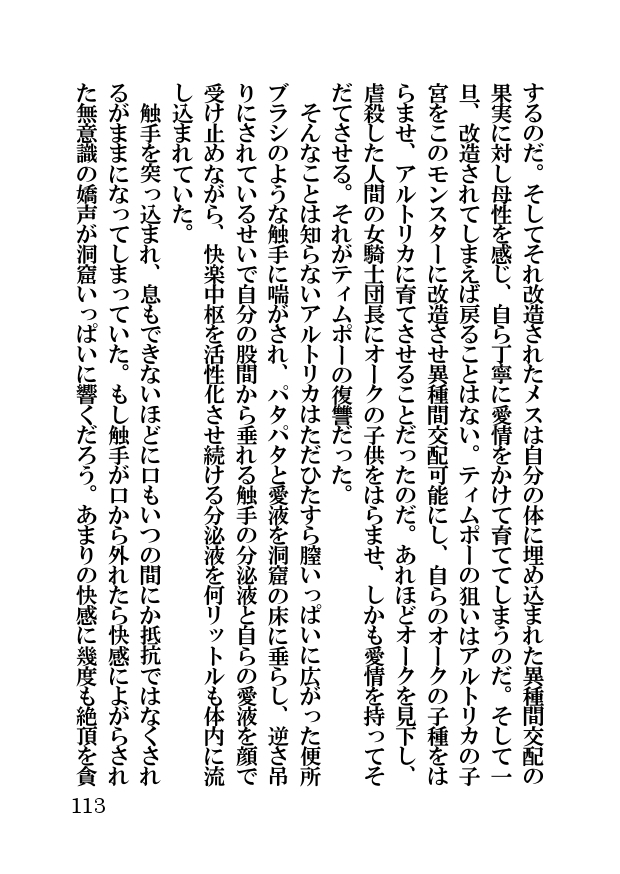 するのだ。そしてそれ改造されたメスは自分の体に埋め込まれた異種間交配の
果実に対し母性を感じ、自ら丁寧に愛情をかけて育ててしまうのだ。そして一
旦、改造されてしまえば戻ることはない。ティムポーの狙いはアルトリカの子
宮をこのモンスターに改造させ異種間交配可能にし、自らのオークの子種をは
らませ、アルトリカに育てさせることだったのだ。あれほどオークを見下し、
虐殺した人間の女騎士団長にオークの子供をはらませ、しかも愛情を持ってそ
だてさせる。それがティムポーの復讐だった。
そんなことは知らないアルトリカはただひたすら膣いっぱいに広がった便所
ブラシのような触手に喘がされ、パタパタと愛液を洞窟の床に垂らし、逆さ吊
りにされているせいで自分の股間から垂れる触手の分泌液と自らの愛液を顔で
受け止めながら、快楽中枢を活性化させ続ける分泌液を何リットルも体内に流
し込まれていた。
触手を突っ込まれ、息もできないほどに口もいつの間にか抵抗ではなくされ
るがままになってしまっていた。もし触手が口から外れたら快感によがらされ
た無意識の嬌声が洞窟いっぱいに響くだろう。あまりの快感に幾度も絶頂を貪
113